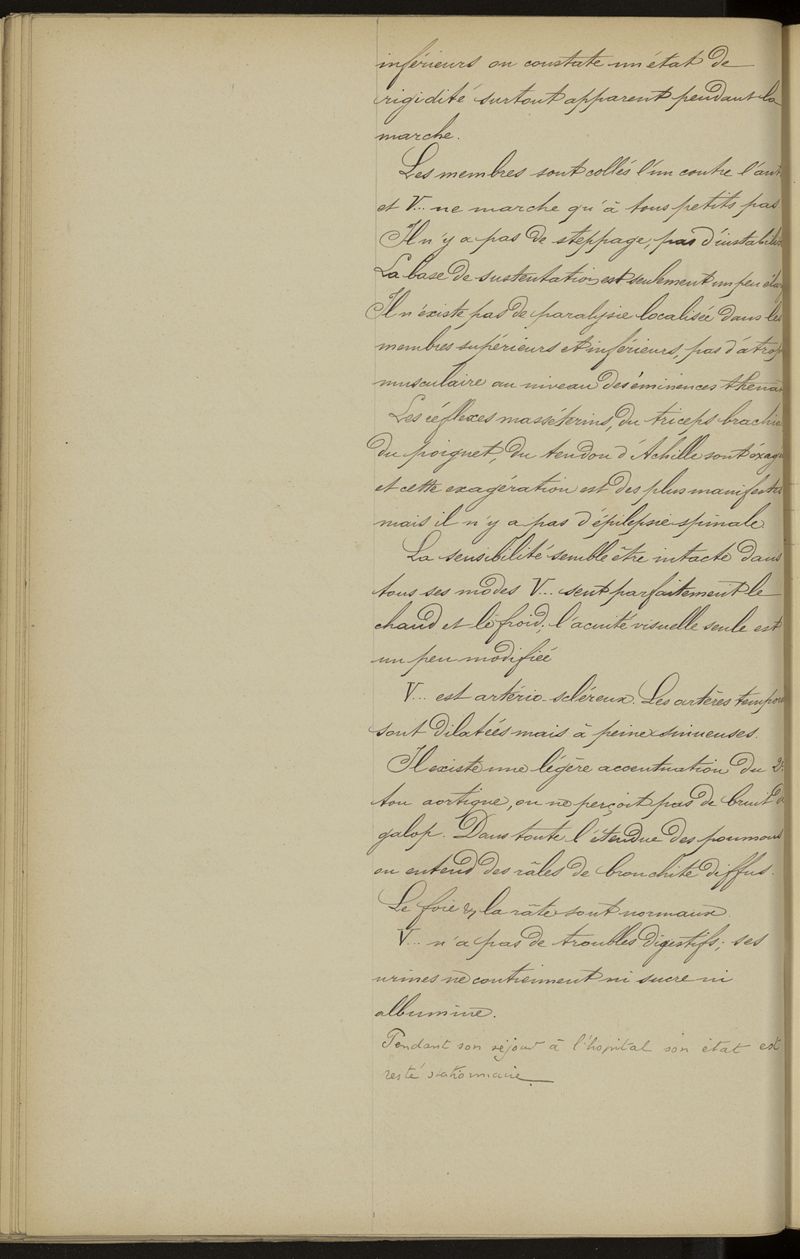 inférieurs on constate un état de
rigidité surtout apparent pendant la
marche.
Les membres sont collés l'un contre l'aut
et V... ne marche qu'à tous petits pas
Il n'y a pas de steppage, pas d'instabili
La base de sustentation est seulement un peu éla
Il n'éxiste pas de paralysie localisée dans les
membres supérieurs et inférieurs, pas d'atrop
musculaire au niveau des éminences thena
Les réflexes massétérins, du triceps brachia
du poignet, du tendon d'Achille sont éxagé
et cette exagération est des plus manifestes
mais il n'y a pas d'épilepsie spinale.
La sensibilité semble être intacte dans
tous ses modes V... sent parfaitement le
chaud et le froid; l'acuité visuelle seule est
un peu modifiée
V... est artério-scléreux. Les artères tempora
sont dilatées mais à peine sinueuses.
Il existe une légère accentuation du 2e
ton aortique, on ne perçoit pas de bruit d
galop. Dans toute l'étendue des poumons
on entend des râles de bronchite diffus.
Le foie & la râte sont normaux.
V... n'a pas de troubles digestifs; ses
urines ne contiennent ni sucre ni
albumine.
Pendant son séjour à l'hopital son état est
resté stationnaire.